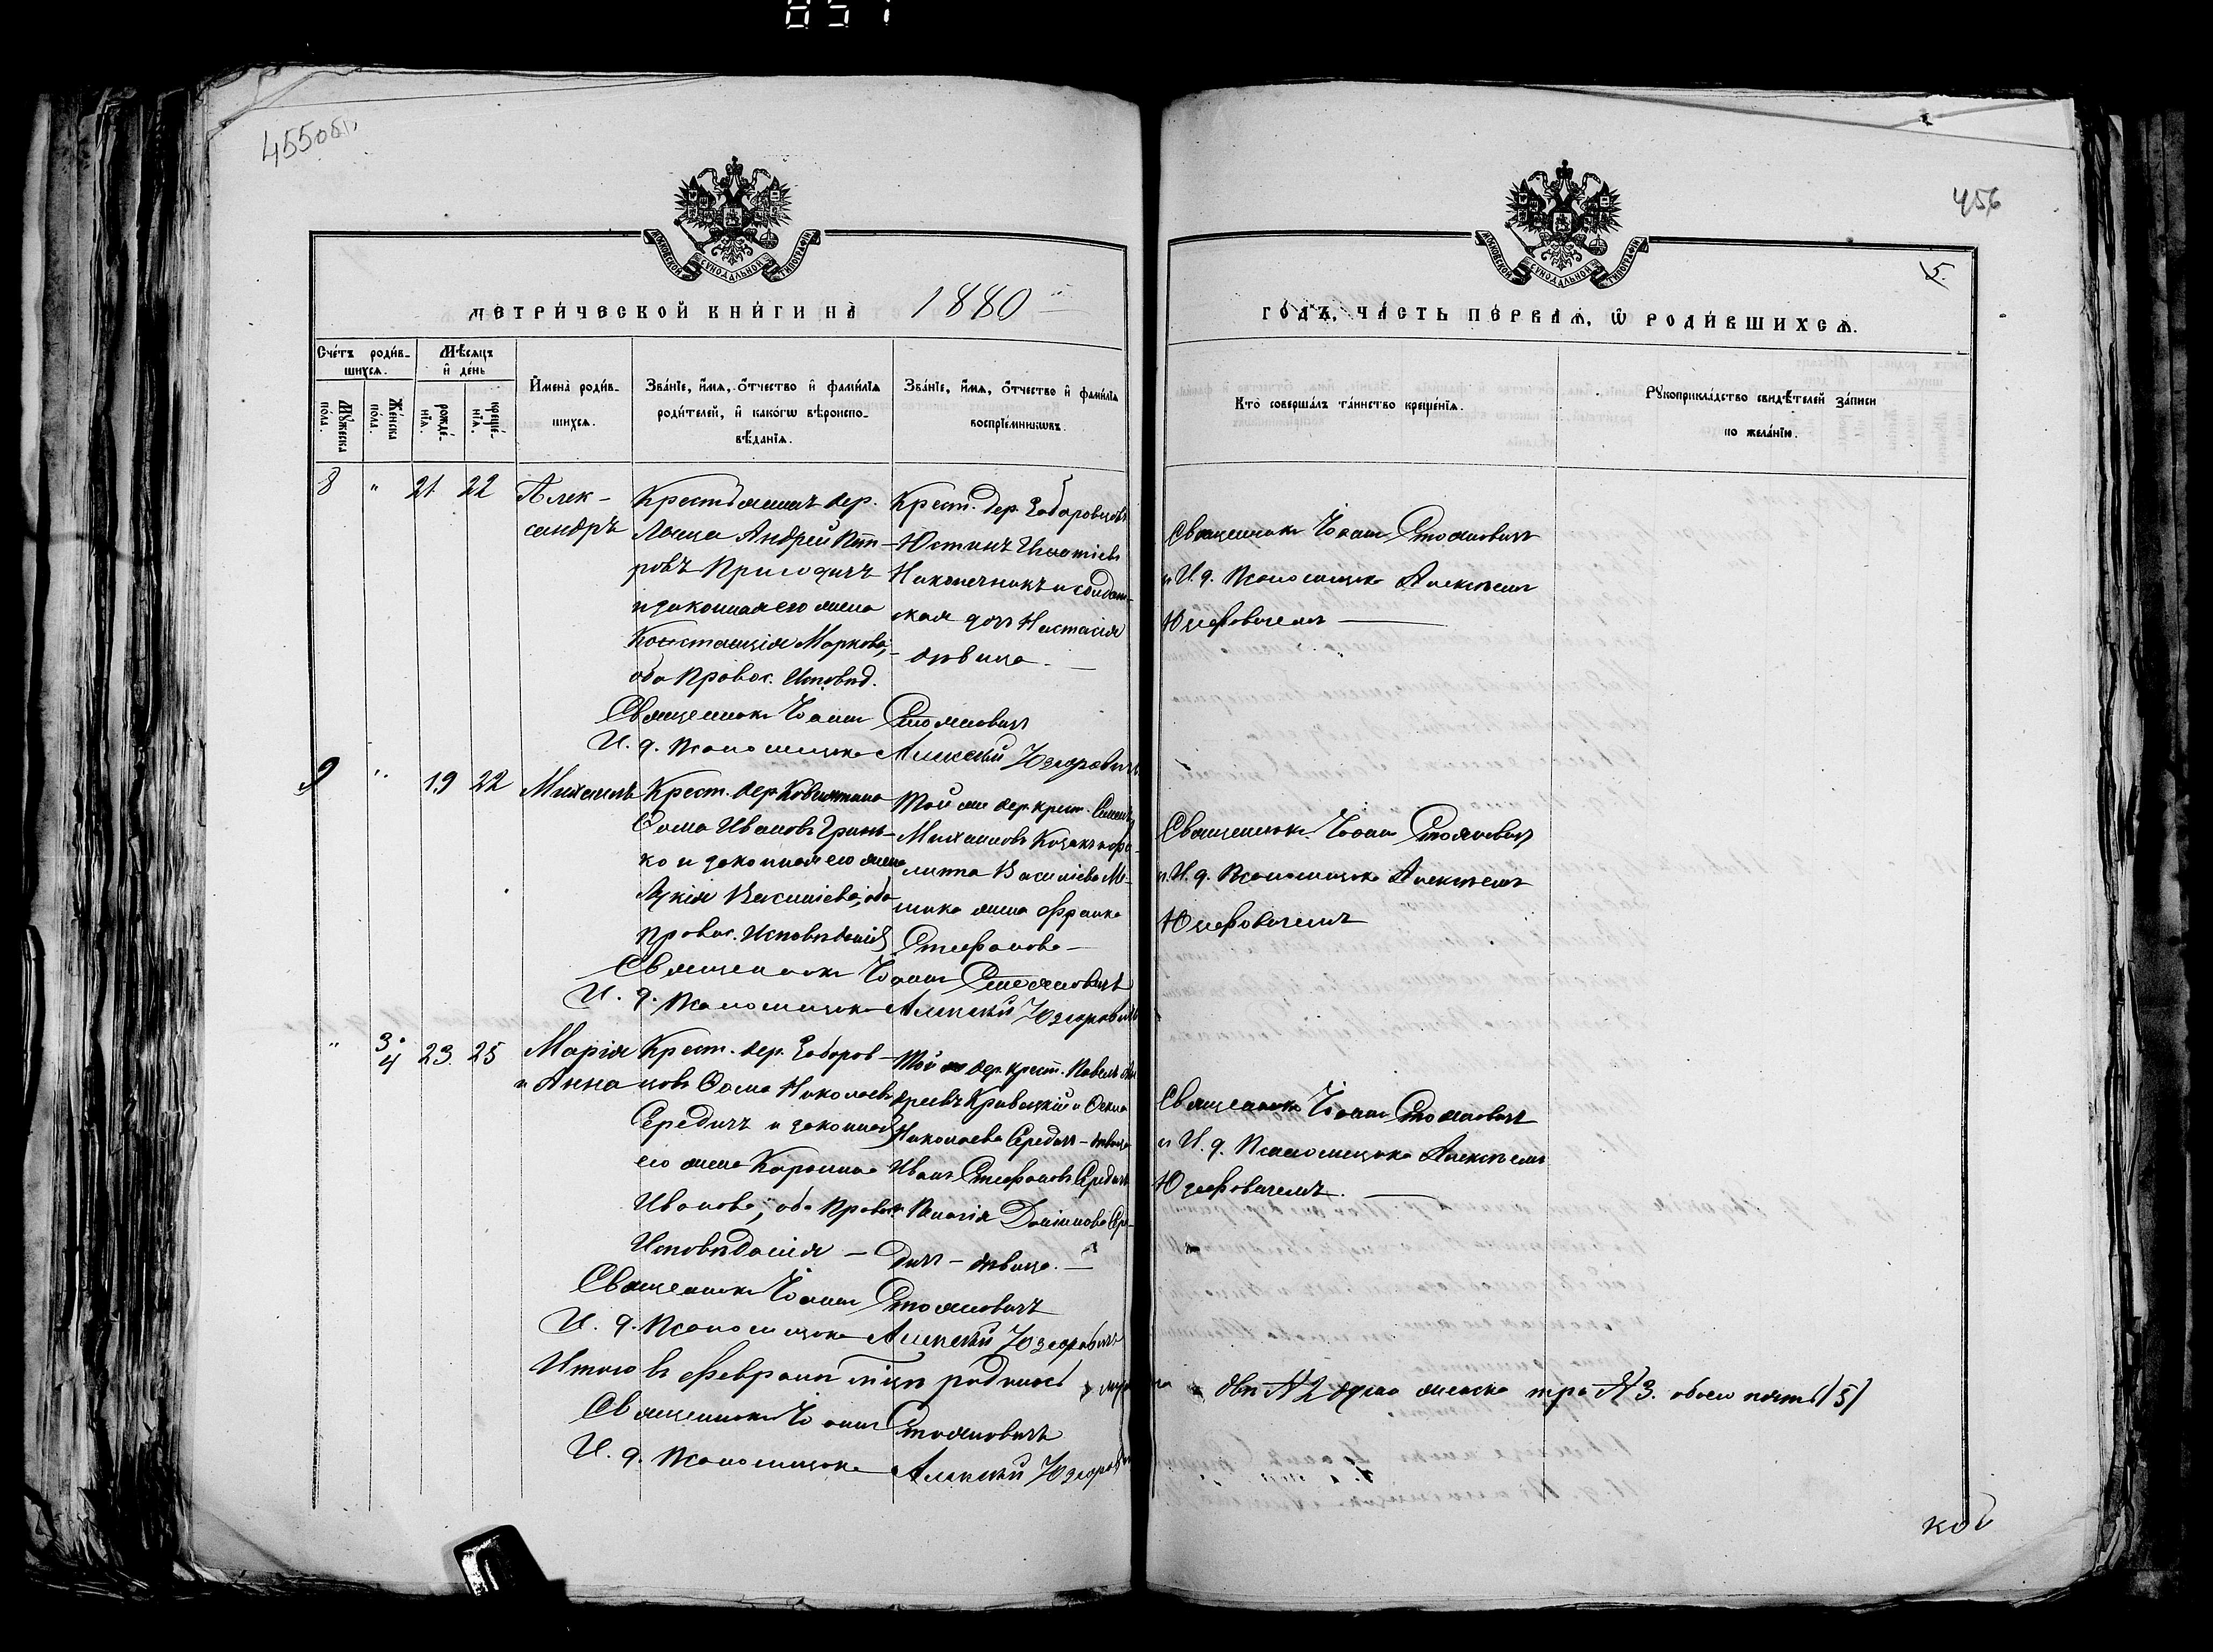 851
455об.
456
5.
МОСКОВСКОЙ СУНОДАЛЬНОЙ ТИПОГРАФІИ
МОСКОВСКОЙ СУНОДАЛЬНОЙ ТИПОГРАФІИ
МЕТРИ́ЧЕСКОЙ КНИ́ГИ НА 1880
ГО́ДЪ, ЧА́СТЬ ПЕ́РВАѦ, Ѡ҆ РОДИ́ВШИХСѦ.
Сче́тъ роди́в-
шихсѧ.
Мꙋ́жеска по́ла.
Же́нска по́ла.
Мѣ́сѧцъ
и҆ де́нь
рожде́-
нїѧ.
креще́-
нїѧ.
И҆мена̀ роди́в-
шихсѧ.
Зва́нїе, и҆́мѧ, ѻ҆́тчество и҆ фами́лїѧ
роди́телей, и҆ како́гѡ вѣроиспо-
вѣ́данїѧ.
Зва́нїе, и҆́мѧ, ѻ҆́тчество и҆ фами́лїѧ
воспрїе́мникѡвъ.
Кто̀ соверша́лъ та́инство креще́нїѧ.
Рꙋкоприкла́дство свидѣ́телей за́писи
по жела́нїю.
8 " 21 22
Алек-
сандръ
Крестьянинъ дер.
Лоща Андрей Пет-
ровъ Пригодичъ
и законная его жена
Констанція Маркова,
оба Правос. Исповѣд.
Крест. дер. Заборовцовъ
Юстинъ Игнатіевъ
Наконечникъ и солдат-
ская дочь Настасія
дѣвица.
Священникъ Іоаннъ Стояновичъ
и И. д. Псаломщика Алексѣемъ
Юзефовичемъ
Священникъ Іоаннъ Стояновичъ
И. д. Псаломщика Алексѣй Юзефовичъ
9 " 19 22
Михаилъ
Крест. дер.
Ѳома Ивановъ Гринь-
ко и законная его жена
Лукія Василіева, оба
Правос. Исповѣданія
Той же дер. крест.
Михаиловъ
Василіева
жена Франка
Стефанова
Священникъ Іоаннъ Стояновичъ
и И. д. Псаломщика Алексѣемъ
Юзефовичемъ
Священникъ Іоаннъ Стояновичъ
И. д. Псаломщика Алексѣй Юзефовичъ
" 3. 4 23 25
Марія
и Анна
Крест. дер. Заборов-
цовъ Ѳома Николаевъ
Середичъ и законная
его жена Каролина
Иванова, оба Правос.
Исповѣданія
Той же дер. крест. Павелъ Анд-
реевъ
Николаева Середичъ - дѣвица
Иванъ Стефановъ Середичъ
Даніилова Сере-
дичъ - дѣвица.
Священникъ Іоаннъ Стояновичъ
и И. д. Псаломщика Алексѣемъ
Юзефовичемъ.
Священникъ Іоаннъ Стояновичъ
И. д. Псаломщика Алексѣй Юзефовичъ
Итого въ Февралѣ м-цѣ родилось два №2 женска три №3. обоего пять (5)
Священникъ Іоаннъ Стояновичъ
И. д. Псаломщика Алексѣй Юзефовичъ